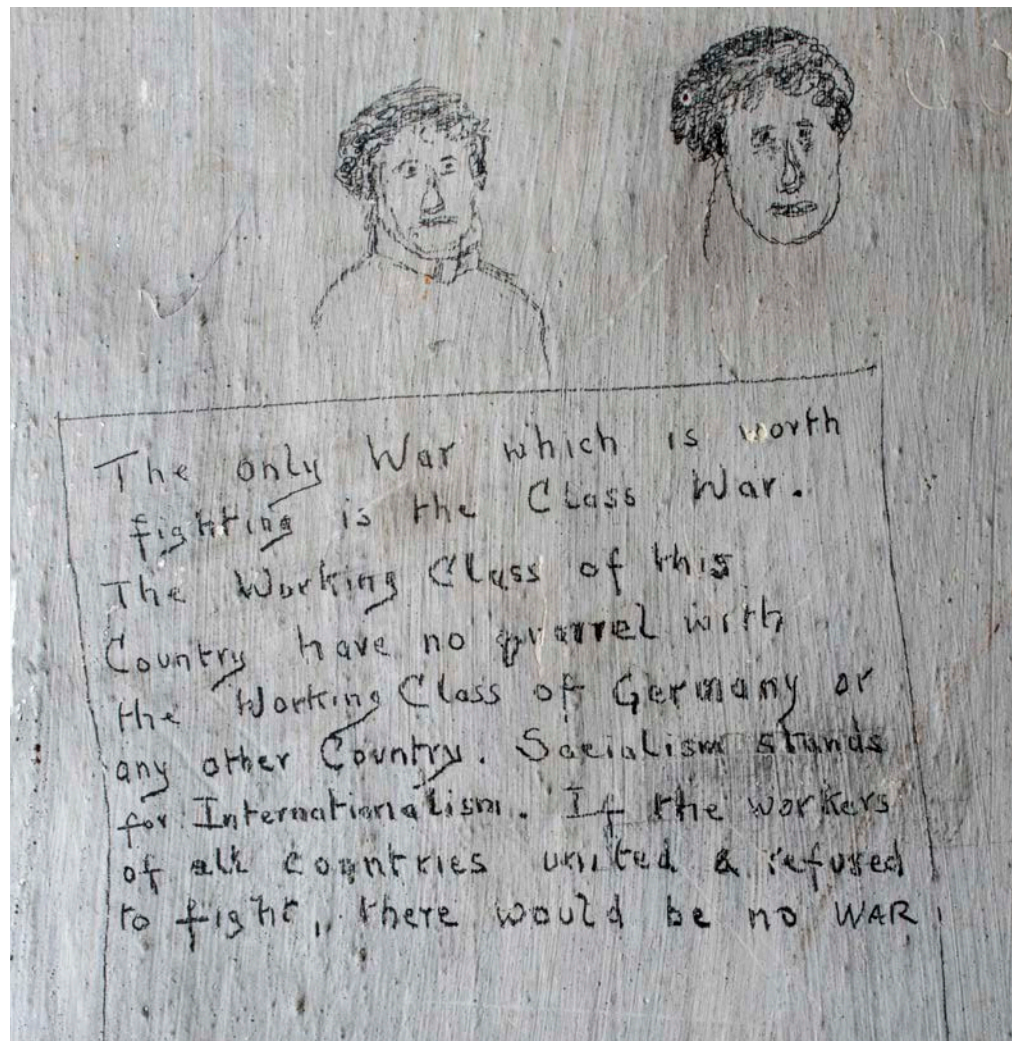 The only War which is worth
fighting is the Class War.
The Working Class of this
Country have no quarrel with
the Working Class of Germany or
any other Country. Socialism stands
for Internationalism. If the workers
of all countries united & refused
to fight, there would be no WAR.